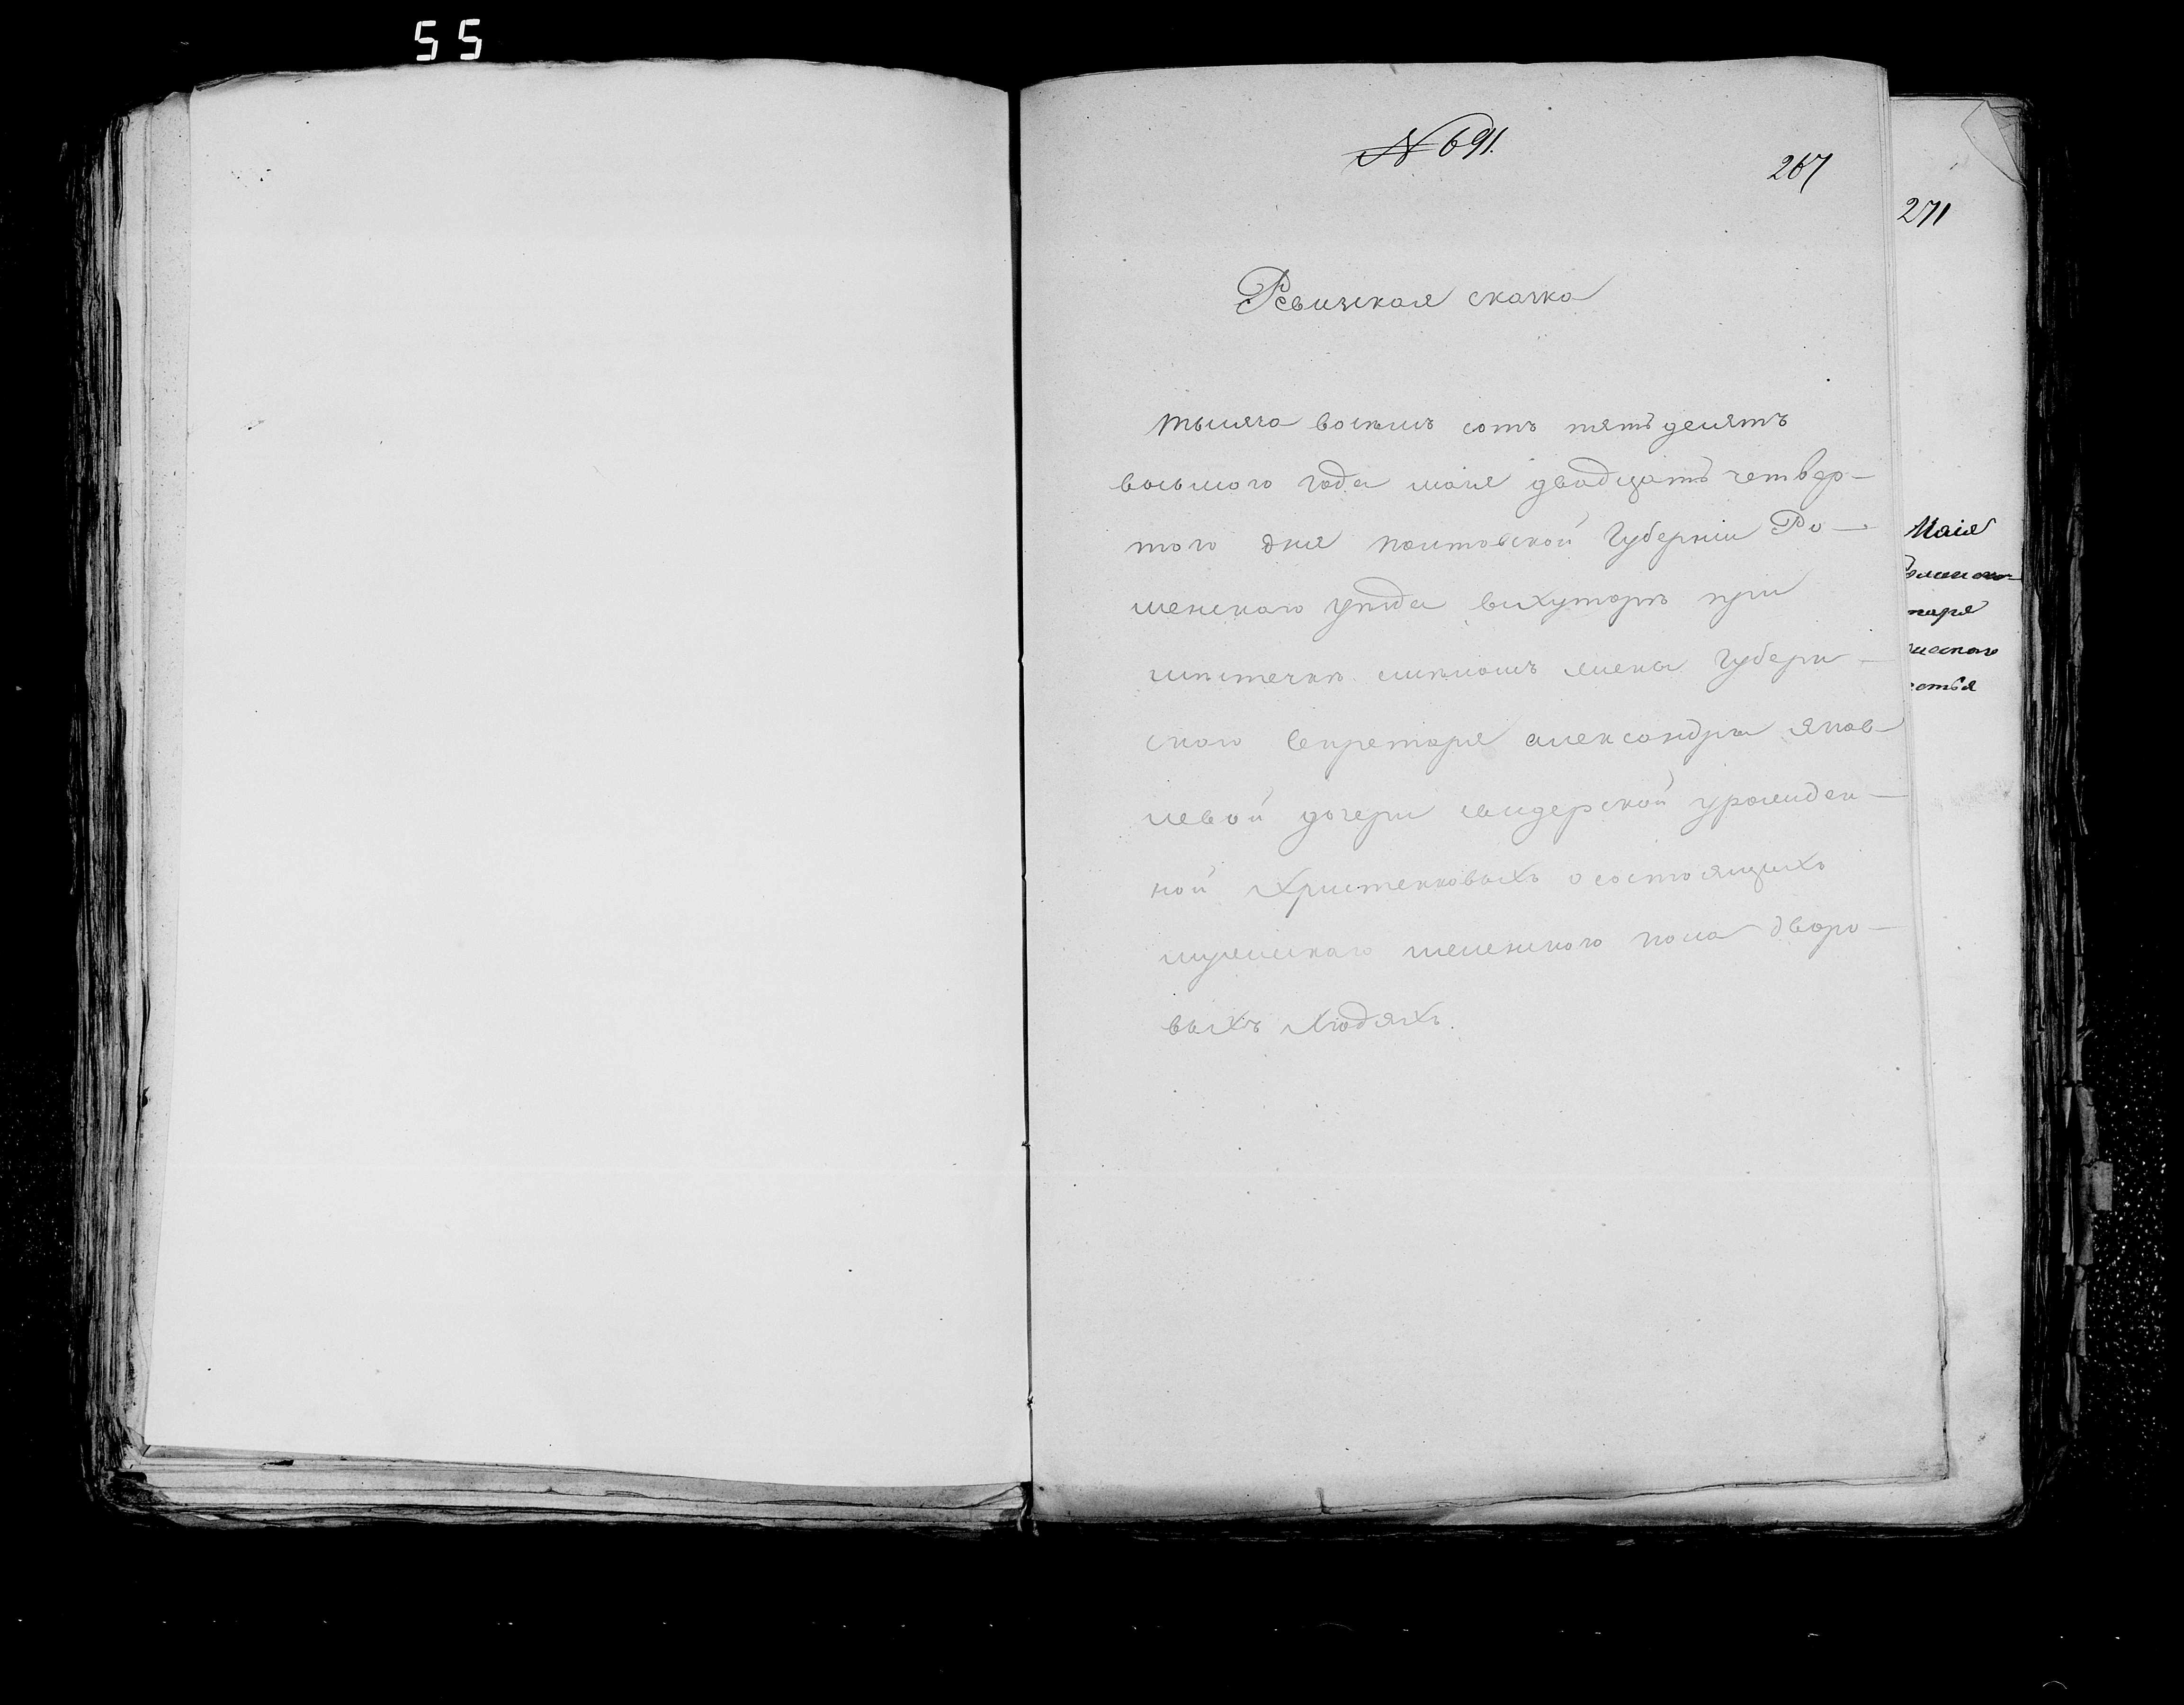 55
N 691.
267
271
Ревизская сказка
тысяча восемь сотъ пятьдесятъ
восьмого года мая двадцать четвер-
того дня полтовской Губерніи Ро-
менского уезда вихуторъ при
местечке смеломъ жена Губерн-
ского Секретаря александра яков-
левой дочери свидерской урожден-
ной Христенковыхъ о состоящихъ
мужескаго женского пола дворо-
выхъ людяхъ.
Маія
таря